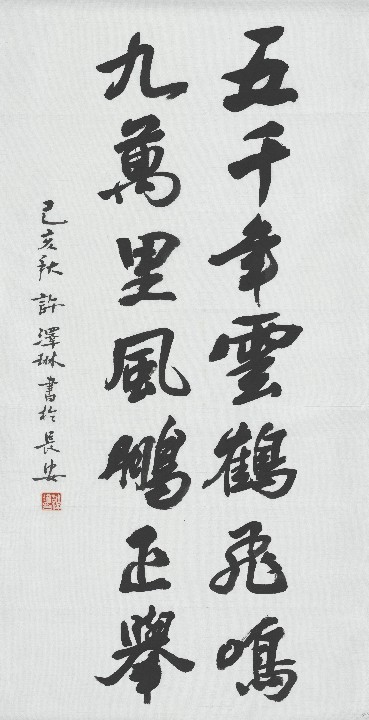 五千年雲鶴飛鳴
九萬里風鵬正舉
己亥秋許澤琳書於長安